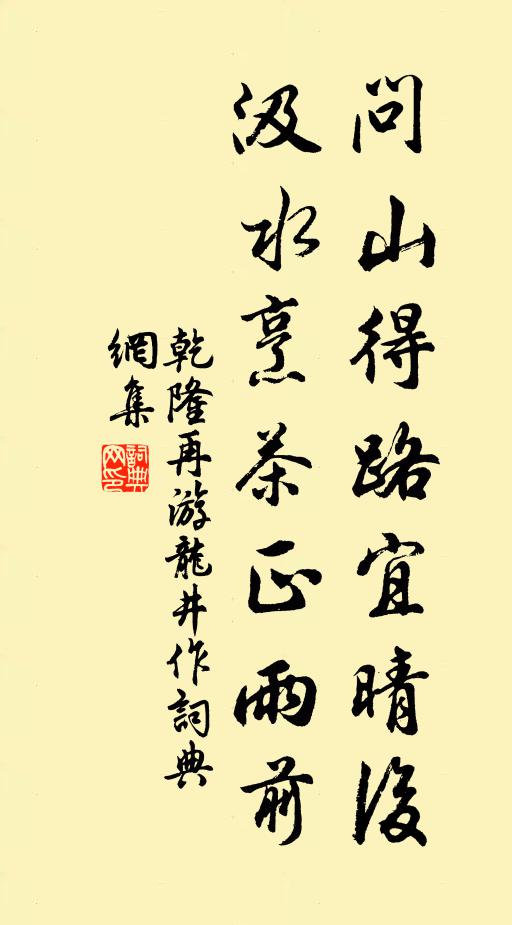 問山得路宜晴後
汲水烹茶正雨前
乾隆再游龍井作詞典
網集
詞典網印